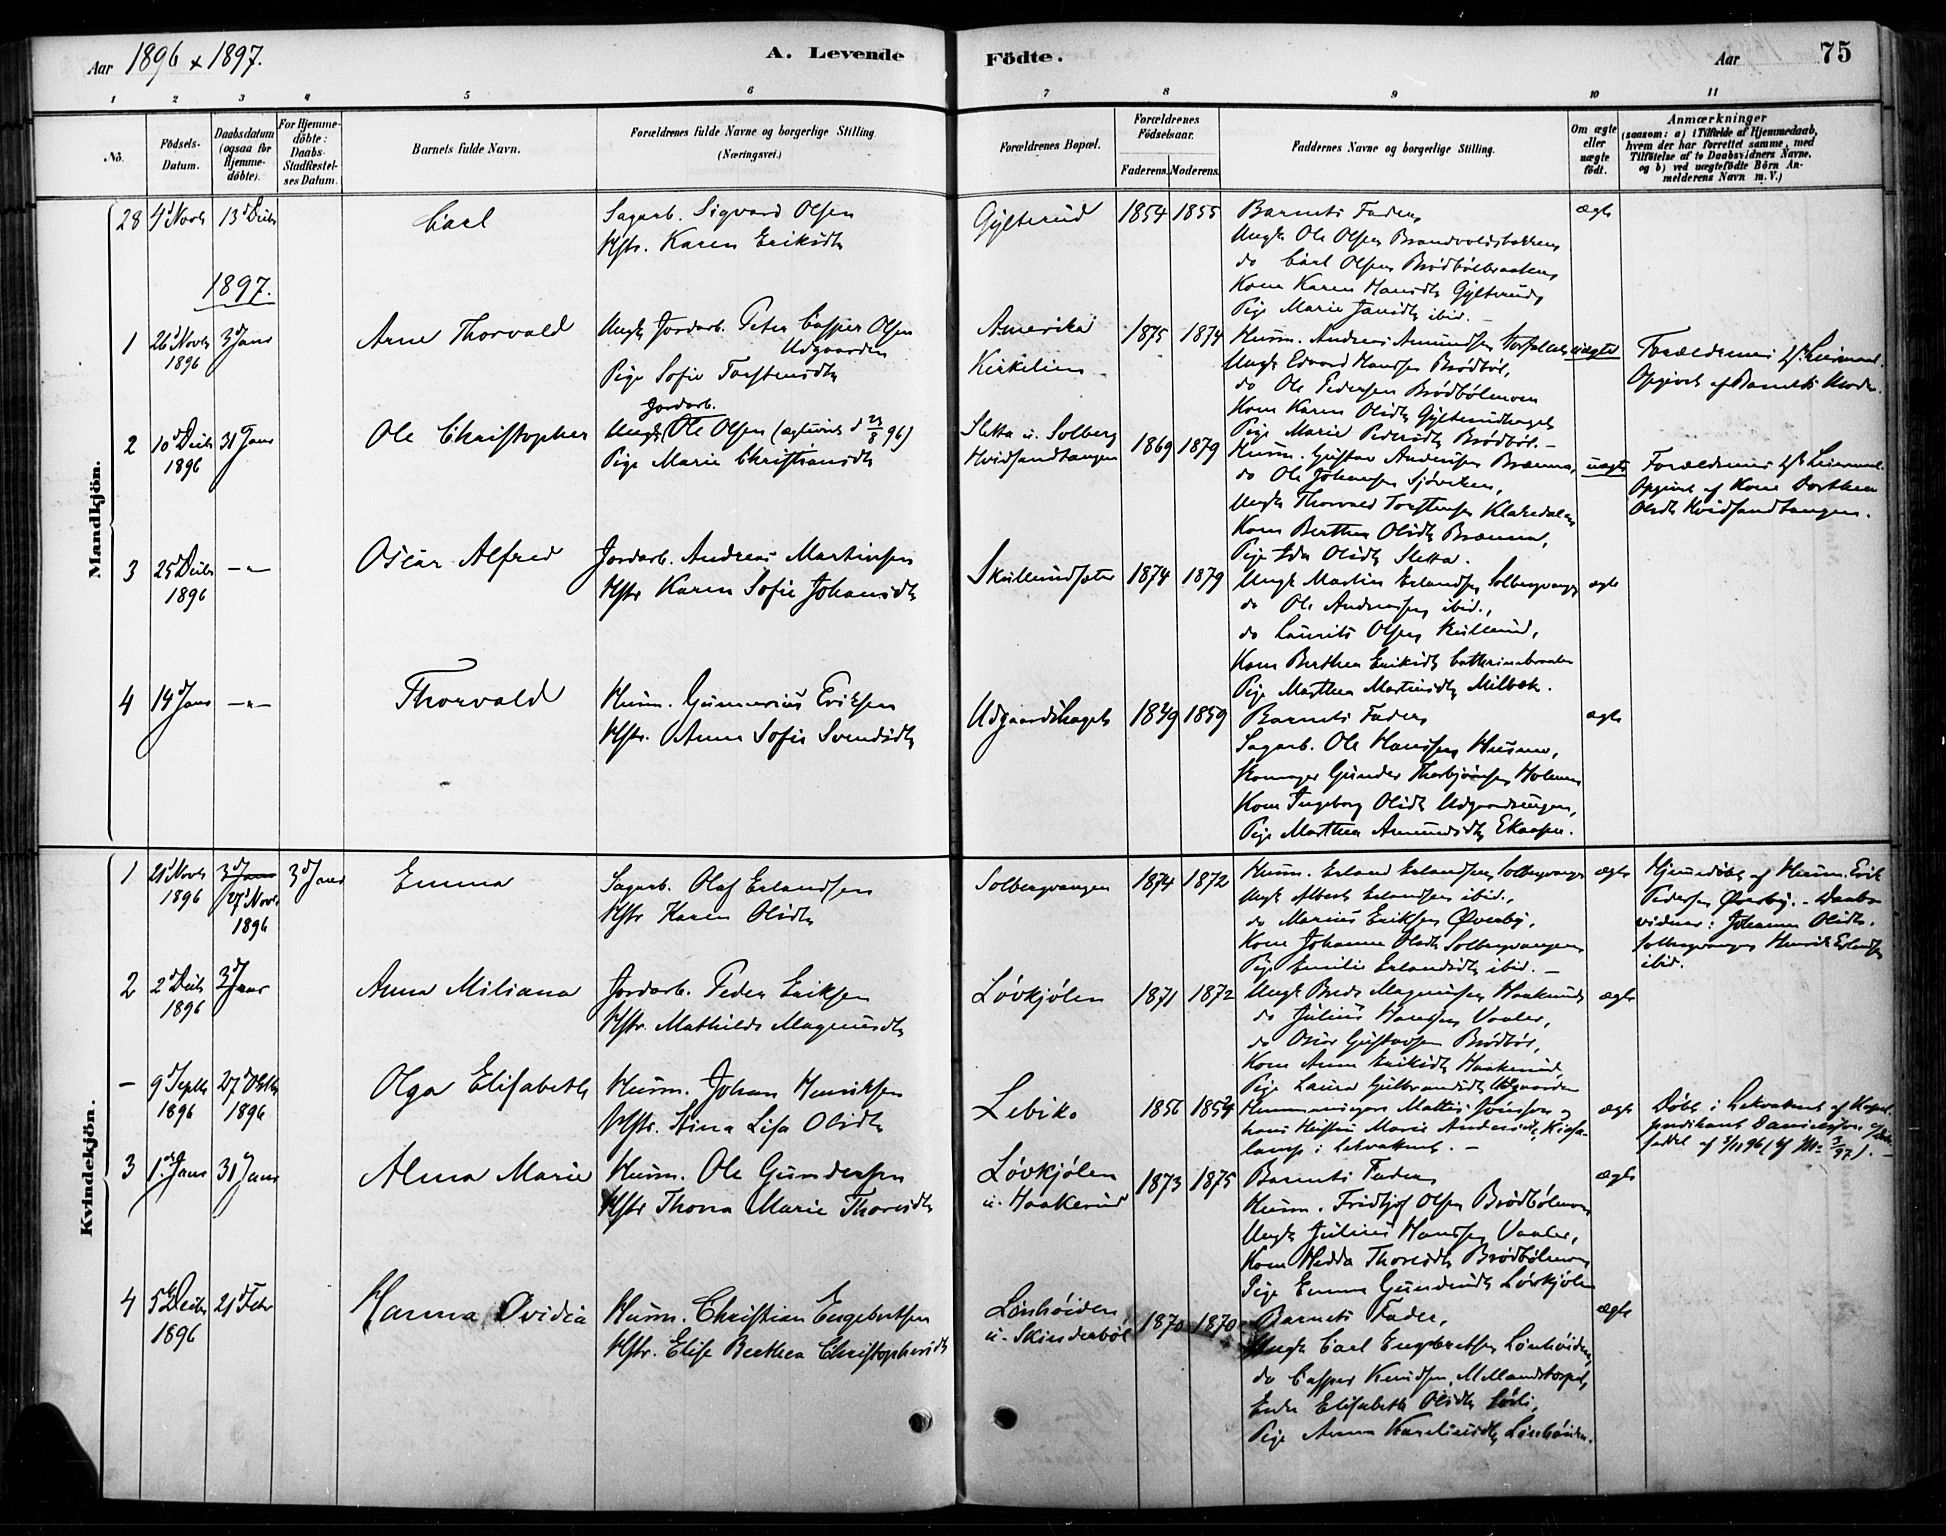 Aar 1896 & 1897.
A. Levende
Födte.
Aar
75
1 2 3 4 5 6 7 8 9 10 11
No.
Födsels-Datum.
Daabsdatum (ogsaa for Hjemme-döbte).
For Hjemme-döbte: Daabs-Stadfæstel-ses Datum.
Barnets fulde Navn.
Forældrenes fulde Navne og borgerlige Stilling
(Næringsvei.)
Forældrenes Bopæl.
Forældrenes Födselsaar.
Faderens. Moderens.
Faddernes Navne og borgerlige Stilling.
Om ægte eller uægte födt.
Anmærkninger
(saasom: a) i Tilfælde af Hjemmedaab, hvem der har forrettet samme, med Tilföielse af to Daabsvidners Navne, og b) ved uægtefödte Börn An-melderens Navn m. V.)
Mandkjön.
28 4d Novb 13d Decb Carl
Sagarb. Sigvard Olsen
Hstr. Karen Eriksdtr
Gylterud 1854 1855
Barnets Fader,
Ungk Ole Olsen Brandvoldsbakken
do Carl Olsen Brödbölbraaten,
Kone Karen Hansdtr Gylterud,
Pige Marie Jansdtr ibid. –
ægte
1897.
1 26d Novb 1896 3d Jan Arne Thorvald
Ungk Jordarb. Peter Casper Olsen
Udgaarden
Pige Sofie Torstensdtr
Amerika
Kirkelien
1875 1874
Husm. Andreas Amundsen
Ungk Edvard Hansen Brödböl,
do Ole Pedersen Brödbölmoen
Kone Karen Olsdtr Gylterudhaget
Pige Marie Pedersdtr Brödböl. –
uægte
Forældrenes 1ste Leiermaal.
Opgivet af Barnets Moder.
2 10d Decb 1896 31 Jan Ole Christopher
Jordarb.
Ungk Ole Olsen (ægteviet d 21/8 96)
Pige Marie Christiansdtr
Sletta u. Solberg
Hvidsandtangen
1869 1879
Husm. Gustav Andersen Brænna,
do Ole Johansen Sjöviken,
Ungk Thorvald Torstensen Klakedalen
Kone Berthea Olsdtr Brænna,
Pige Ida Olsdtr Sletta.
uægte
Forældrenes 1ste Leiermaal.
Opgivet af Kone Dorthea
Olsdtr Hvidsandtangen.
3 25d Decb 1896 –"– Oscar Alfred
Jordarb. Andreas Martinsen
Hstr Karen Sofie Johansdtr
Skullerudsæter 1874 1879
Ungk Martin Erlandsen Solbergvangen
do Ole Andreasen ibid.,
do Laurits Olsen Kullerud,
Kone Berthea Eriksdtr Cathrinebraaten
Pige Marthea Martinsdtr Milbæk.
ægte
4 14d Jan –"– Thorvald
Husm. Gunnerius Eriksen
Hstr. Anne Sofie Svendsdtr
Udgaardshaget 1849 1859
Barnets Fader,
Sagarb. Ole Hansen Husmo,
Skomager Gunder Thorbjörnsen Holmen
Kone Ingeborg Olsdtr Udgaardsengen,
Pige Marthea Amundsdtr Ekaasen.
ægte
Kvindekjön.
1 21d Novb 1896 3d Jan 27d Novb 1896 3d Jan Emma
Sagarb. Olaf Erlandsen
Hstr Karen Olsdtr
Solbergvangen 1874 1872
Husm. Erland Erlandsen Solbergvangen
Ungk Albert Erlandsen ibid.,
do Marius Eriksen Øverby,
Kone Johanne Olsdtr Solbergvangen
Pige Emilie Erlandsdtr ibid. –
ægte
Hjemmedöbt af Husm. Erik
Pedersen Øverby. – Daabs
vidner: Johanne Olsdtr
Solbergvangen Henrik Erlandsen
ibid.
2 2d Decb 1896 3d Jan Anna Miliana
Jordarb. Peder Eriksen
Hstr. Mathilde Magnusdtr
Lövkjölen 1871 1872
Ungk Brede Magnussen Haakerud
do Julius Hansen Vaaler,
do Oscar Gustavsen Brödböl,
Kone Anne Eriksdtr Haakerud,
Pige Laura Gulbrandsdtr Udgaarden
ægte
– 9d Septb 1896 27d Octb 1896 Olga Elisabeth
Husm. Johan Henriksen
Hstr. Stina Lisa Olsdtr
Lebiko 1856 1854
Hemmansegare Mattis Jönsson og
hans Hustru Marie Andersdtr
i Lekvattnet. –
ægte
Döbt i Lekvattnet af Kapel-
predikant Danielsson
3 1ste Jan 31d Jan Alma Marie
Husm. Ole Gundersen
Hstr Thona Marie Thoresdtr
Lövkjölen
u. Haakerud
1873 1875
Barnets Fader,
Husm. Fridtjof Olsen Brödbölmoen
Ungk Julius Hansen Vaaler,
Kone Hedda Thoresdtr Brödbölmoen
Pige Emma Gundersdtr Lövkjölen
ægte
4 5te Decb 1896 21d Febr Hanna Ovidia
Husm. Christian Engebretsen
Hstr. Elise Berthea Christophersdtr
Linhöiden
u. Skinderböl
1870 1870
Barnets Fader,
Ungk Carl Engebretsen Linhöiden,
do Casper Knudsen, Mellandstorpet,
Enke Elisabeth Olsdtr
Pige Anna Karelinesdtr Linhöiden.
ægte